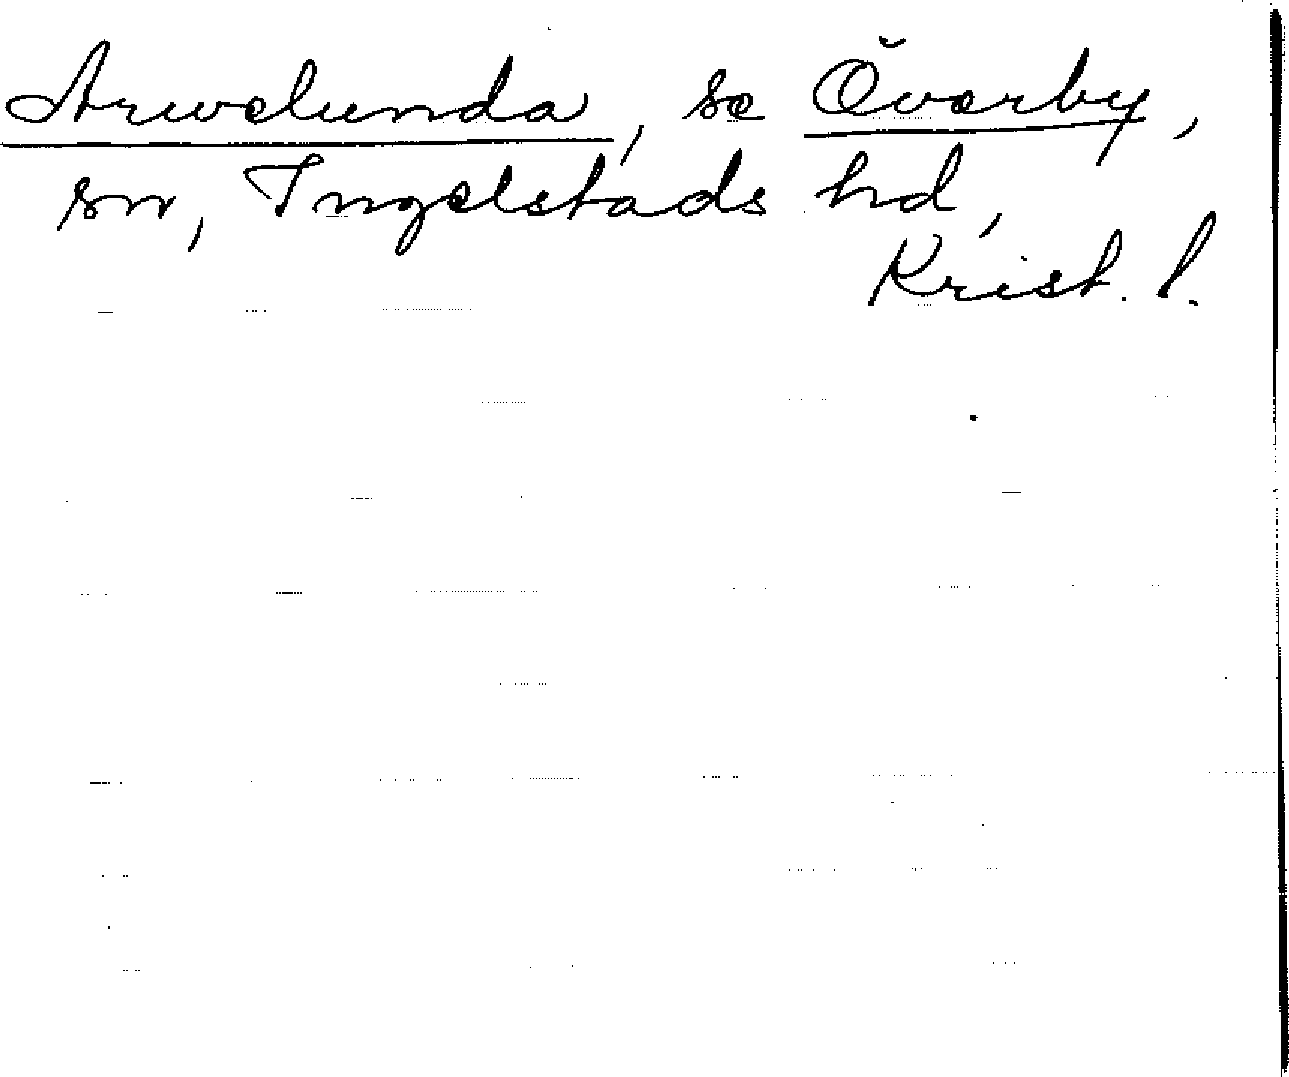 Arwelunda, se Överby,
sn, Ingelstads hd,
Krist. l.